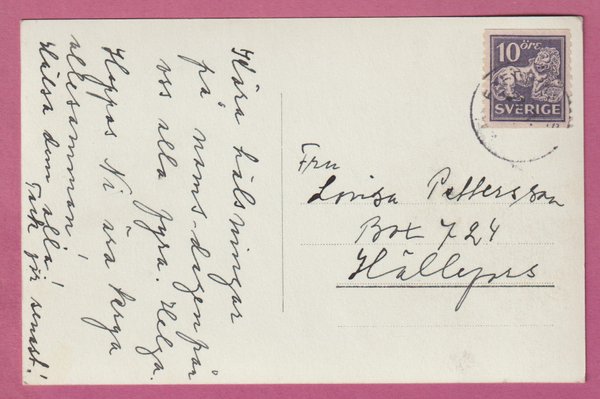 Kära hälsningar
på namns-dagen från
oss alla fyra. Helga.
Hoppas Ni ära kerga
allesamman!
Hälsa dem alla!
Tack för senast!
10 öre
SVERIGE
Fru
Lovisa Pettersson
Box 724
Hällefors